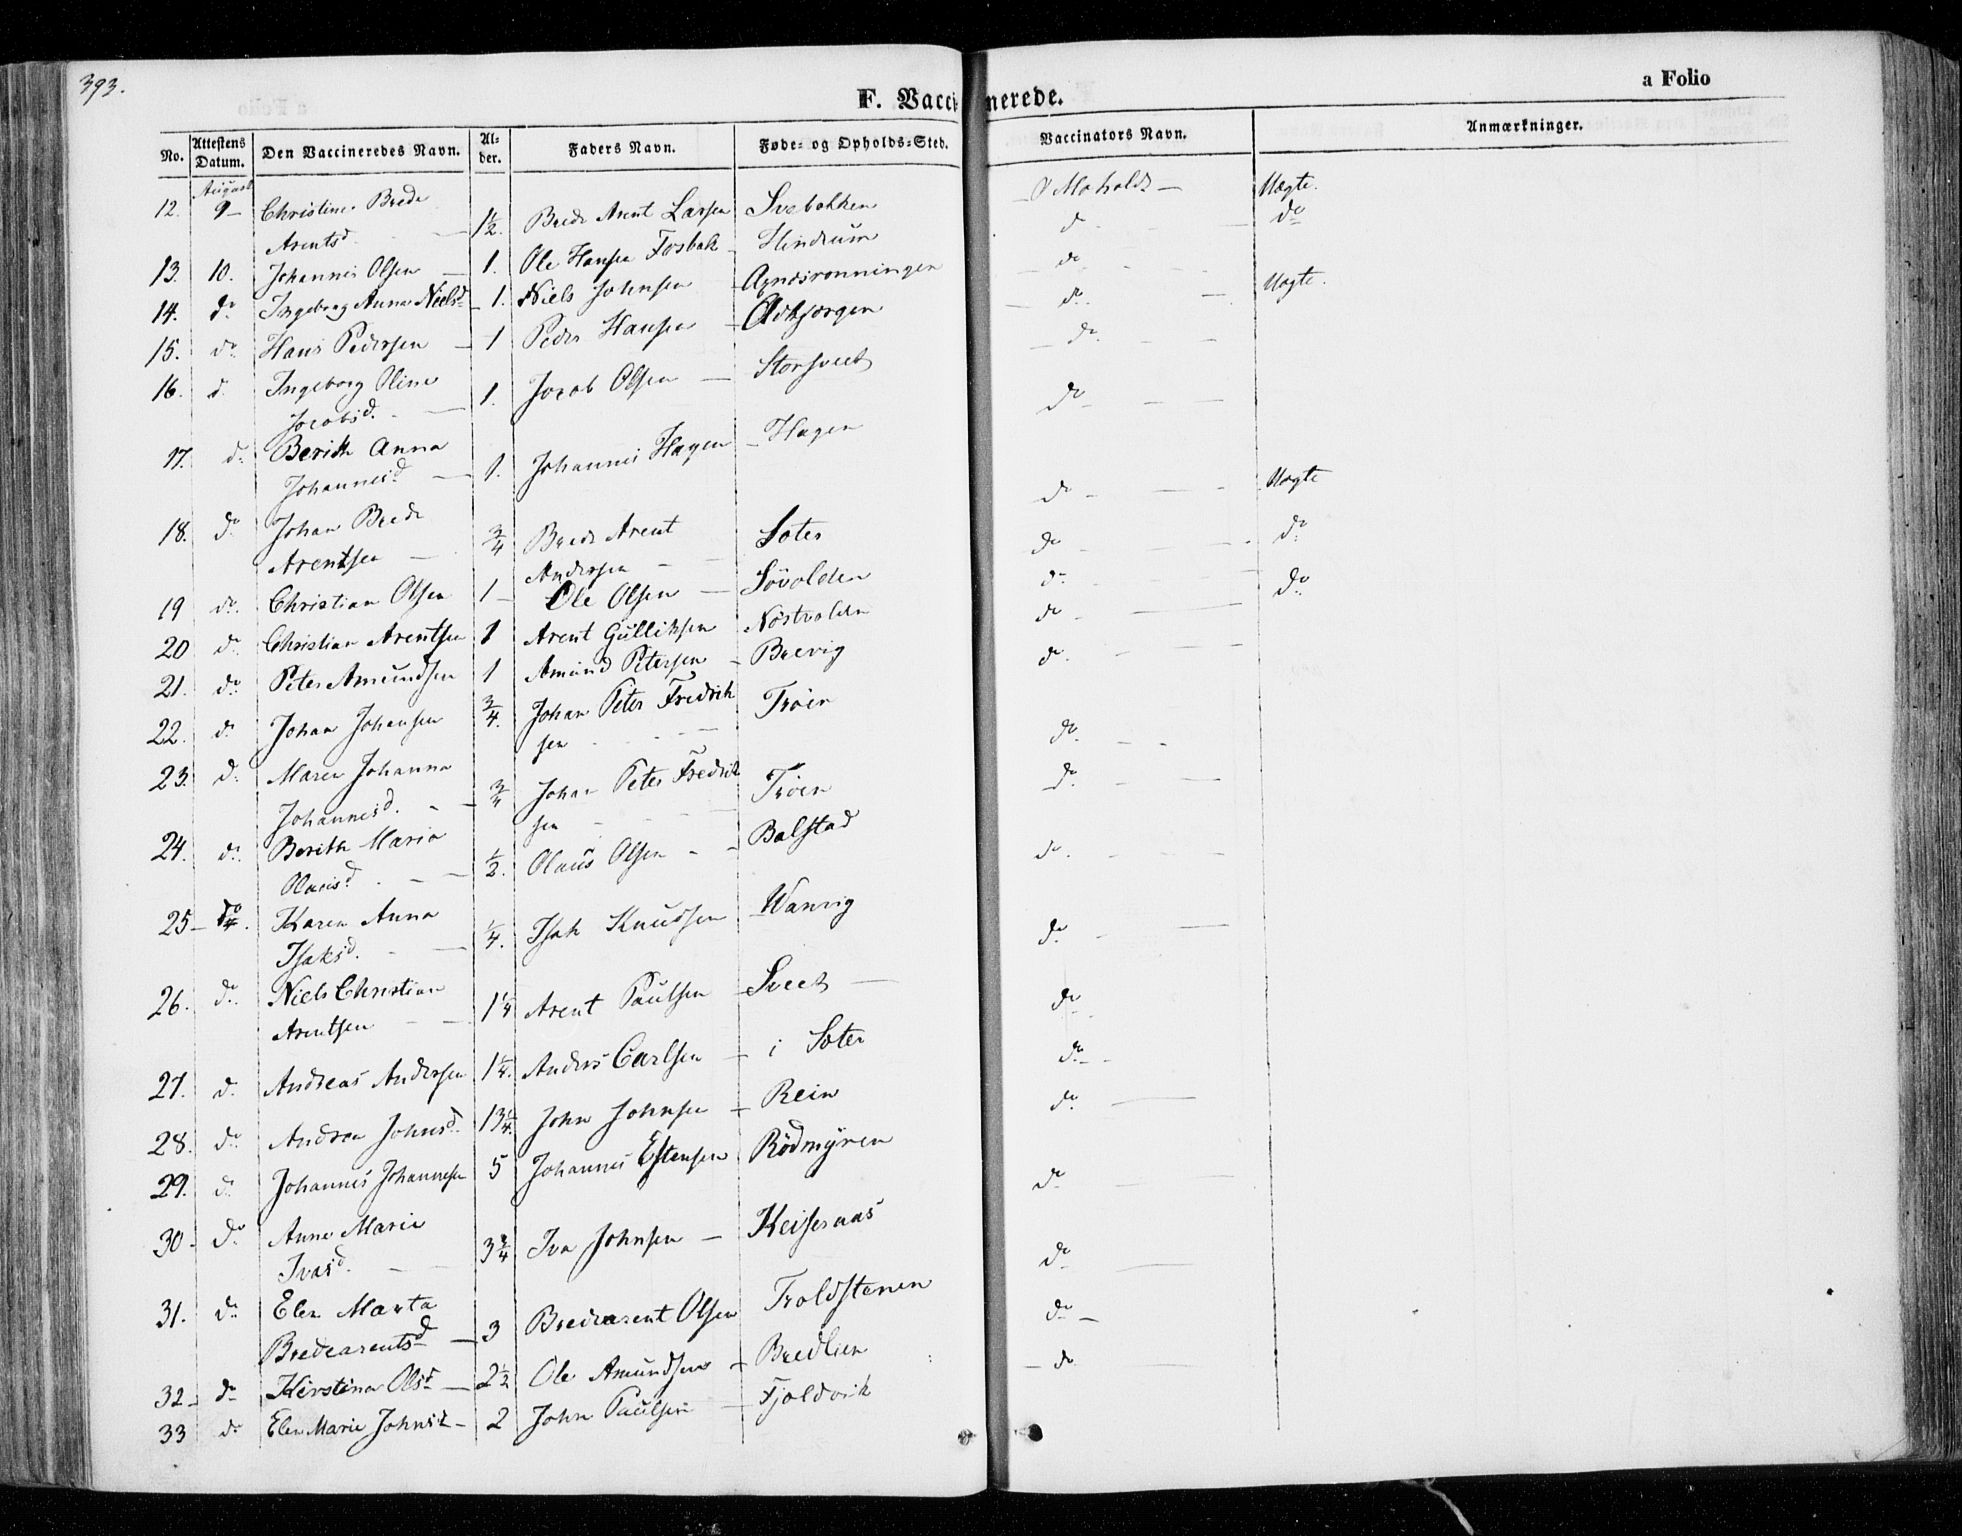 393.
a Folio
F. Vaccinerede.
No. Attestens Datum. Den Vaccineredes Navn. Al-der. Faders Navn. Føde- og Opholds-Sted. Vaccinators Navn. Anmærkninger.
August
12. 9 Christine Brede
Arentsd. 1½ Brede Arent Larsen Svebakken Moholdt Uægte.
13. 10. Johannes Olsen 1. Ole Hansen Fosbak Hindrum do do
14. do Ingeborg Anna Nielsd 1. Niels Johnsen Agndsrønningen do
15. do Hans Pedersen 1 Peder Hansen do Uægte.
16. d Ingeborg Oline
Jocobsd. 1. Jocob Olsen Storsveet do
17. d. Berith Anna
Johannesd 1. Johannes Hagen Hagen do
18. do Johan Brede
Arentsen ¾ Brede Arent
Andersen Soter do Uægte
19 do Christian Olsen 1 Ole Olsen Søvolden do do
20 do Christian Arentsen 1 Arent Gulliksen Nøstvolden do do
21. do Peter Amundsen 1 Amund Petersen Brevig do
22. do Johan Johansen ¾. Johan Peter Fredrik
sen Trøen do
23. do Maren Johanna
Johannesd. ¾ Johan Peter Fredrik
sen Trøen do
24. do Berith Maria
Olausd. ½. Olaus Olsen Balstad do
25 do Karen Anna
Isaksd. ¼. Isak Knudsen Wanvig do
26. do Niels Christian
Arentsen 1¼ Arent Paulsen Sveet do
27. d. Andreas Andersen 1¼. Anders Carlsen i Soter do
28. do Andrea Johnsd. 13¼. John Johnsen Rein do
29. d. Johannes Johannesen 5 Johannes Estensen Rödmÿren do
30 do Anne Marie
Ivasd. 3¾ Iva Johnsen Keiseraas do
31. do Elen Marta
Bredearentsd 3 Bredearent Olsen Troldstenen do
32 do Kirstina Olsd 2½ Ole Amundsen Bredlien do
33 do Elen Marie Johnsd 2 John Paulsen Fjoldvik